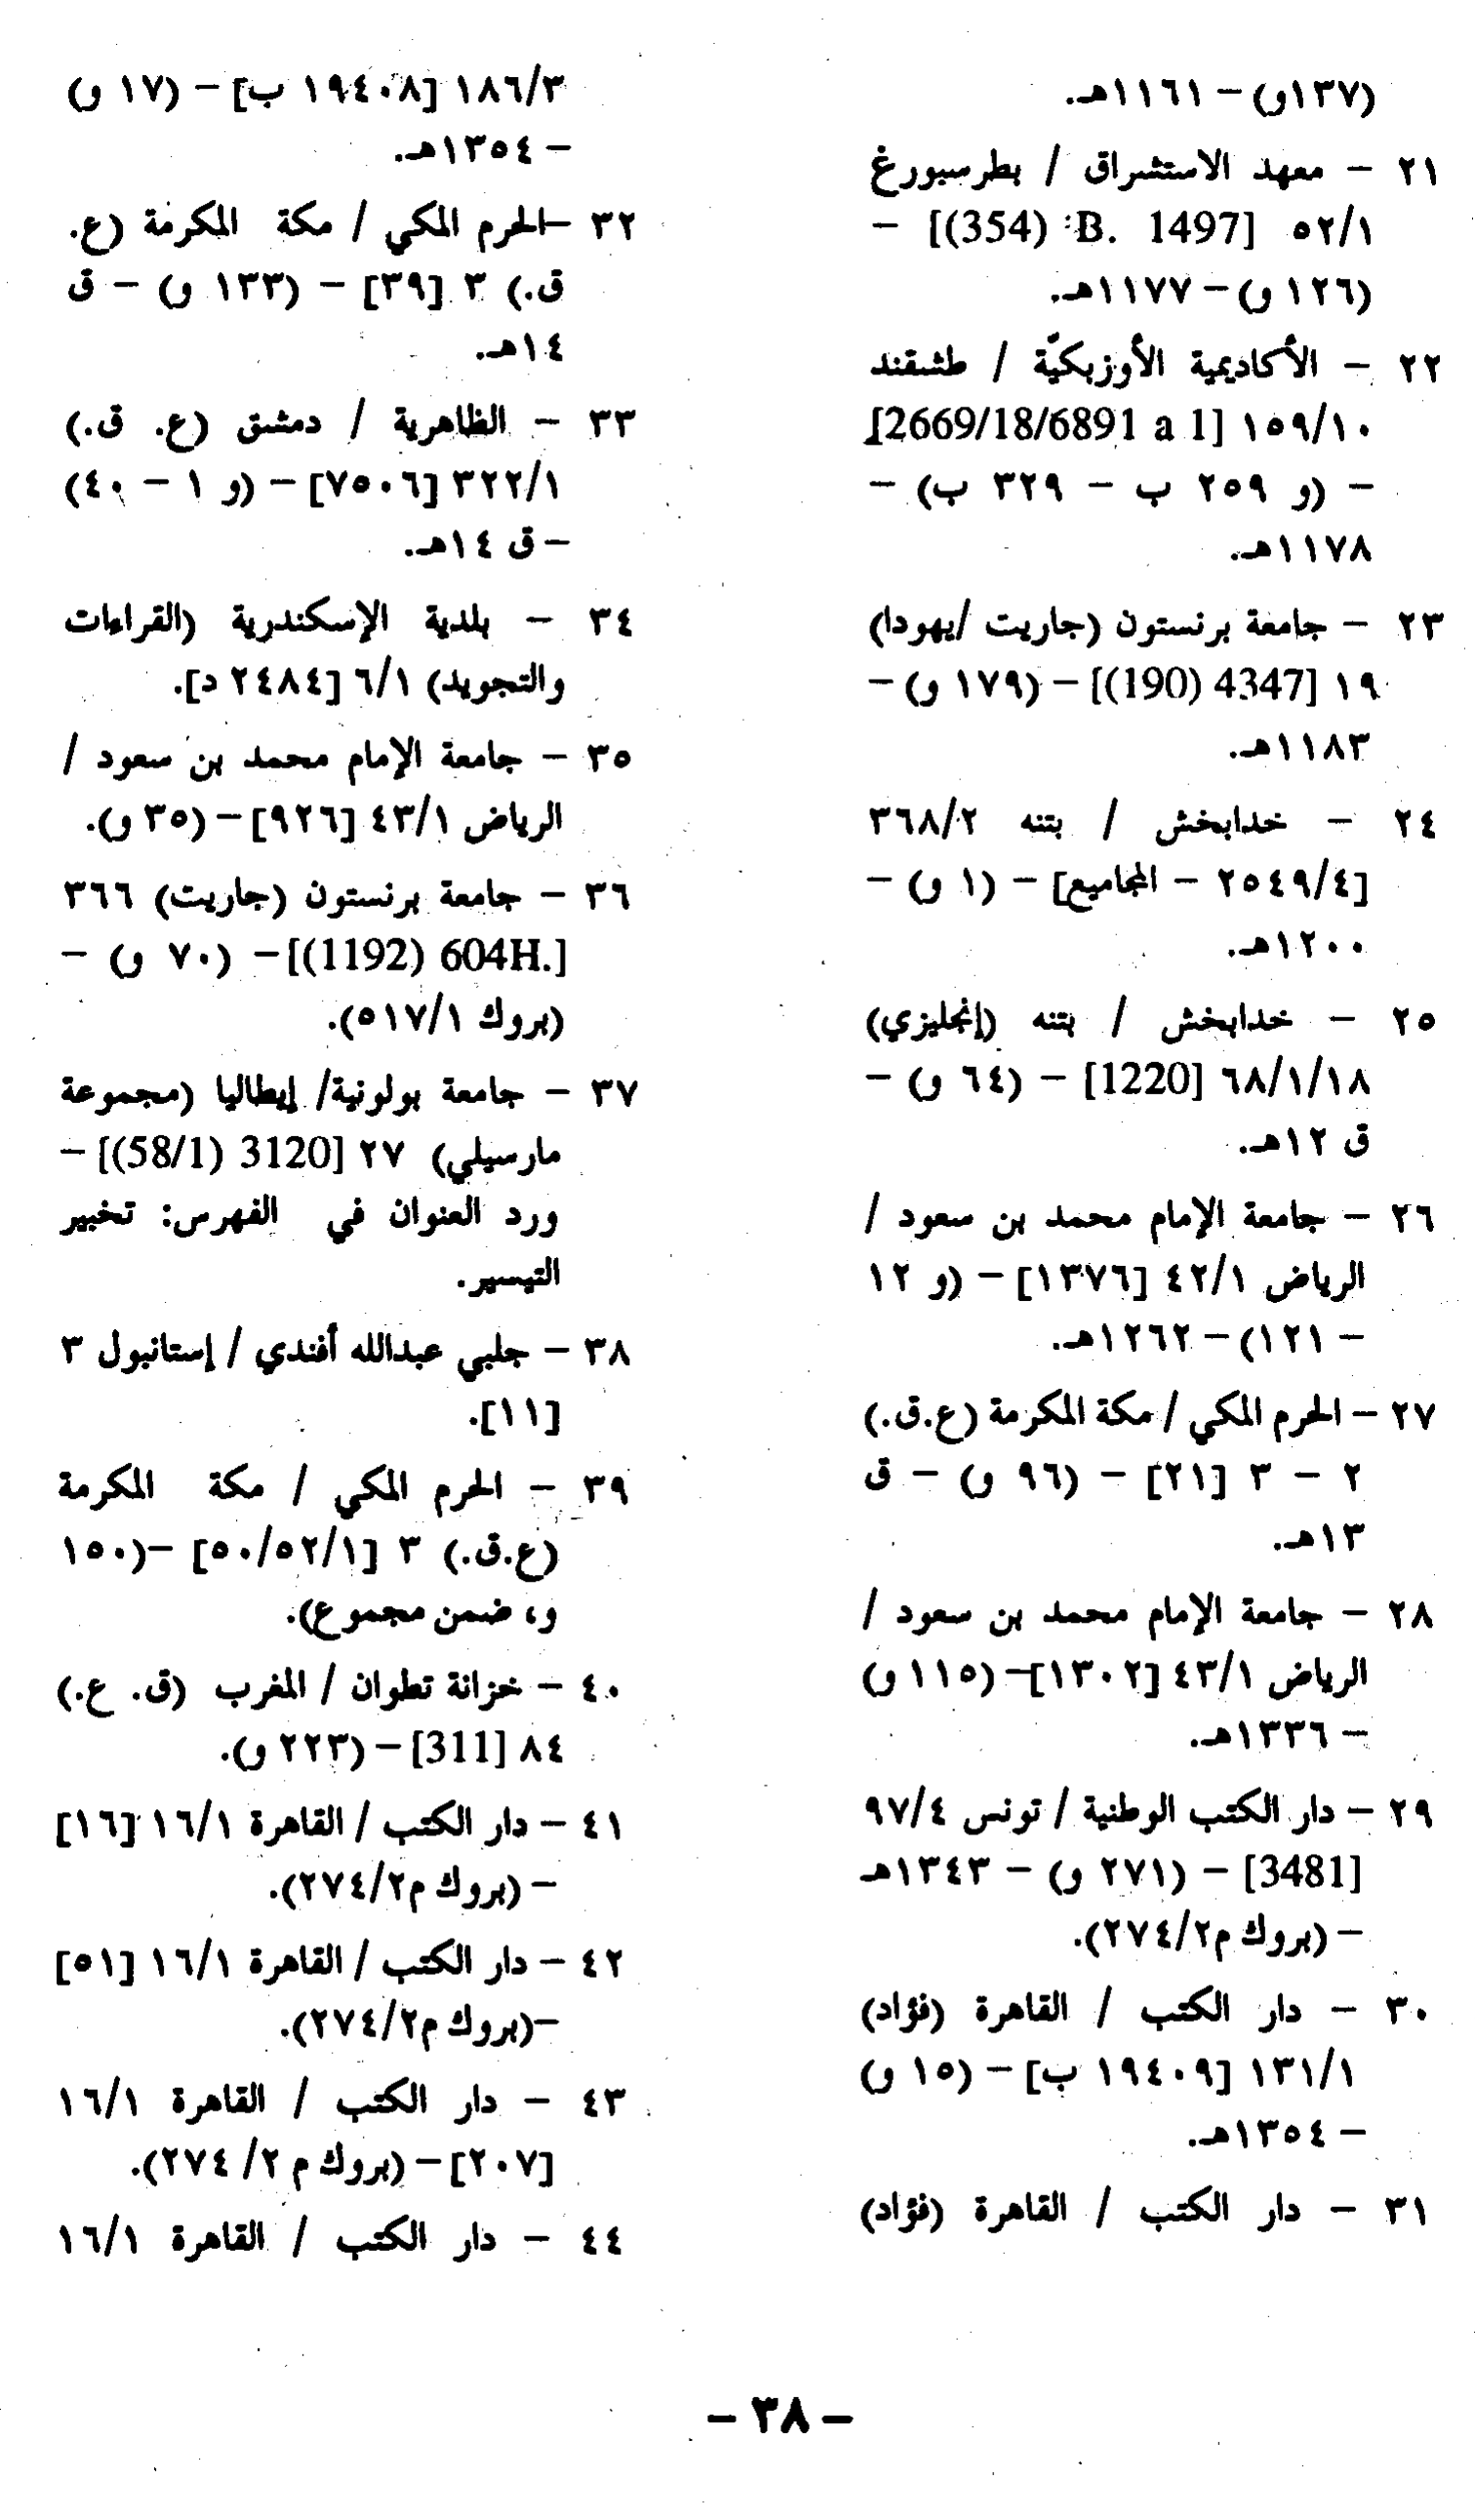 (١٣٧و) – ١١٦١هـ.
٢١ – معهد الاستشراق / بطرسبورغ
٥٢/١ [B. 1497 (354)] –
(١٢٦ و) – ١١٧٧هـ.
٢٢ – الأكاديمية الأوزبكيّة / طشقند
١٥٩/١٠ [2669/18/6891 a 1]
– (و ٢٥٩ ب – ٣٢٩ ب) –
١١٧٨هـ.
٢٣ – جامعة برنستون (جاريت /يهودا)
١٩ [4347 (190)] – (١٧٩ و) –
١١٨٣هـ.
٢٤ – خدابخش / بتنه ٣٦٨/٢
[٢٥٤٩/٤ – المجاميع] – (١ و) –
١٢٠٠هـ.
٢٥ – خدابخش / بتنه (إنجليزي)
٦٨/١/١٨ [1220] – (٦٤ و) –
ق ١٢هـ.
٢٦ – جامعة الإمام محمد بن سعود /
الرياض ٤٢/١ [١٣٧٦] – (و ١٢
– ١٢١) – ١٢٦٢هـ.
٢٧ – الحرم المكي / مكة المكرمة (ع.ق.)
٢ – ٣ [٢١] – (٩٦ و) – ق
١٣هـ.
٢٨ – جامعة الإمام محمد بن سعود /
الرياض ٤٣/١ [١٣٠٢]– (١١٥ و)
– ١٣٣٦هـ.
٢٩ – دار الكتب الوطنية / تونس ٩٧/٤
[3481] – (٢٧١ و) – ١٣٤٣هـ
– (بروك م٢٧٤/٢).
٣٠ – دار الكتب / القاهرة (فؤاد)
١٣١/١ [١٩٤٠٩ ب] – (١٥ و)
– ١٣٥٤هـ.
٣١ – دار الكتب / القاهرة (فؤاد)
١٨٦/٣ [١٩٤٠٨ ب] – (١٧ و)
– ١٣٥٤هـ.
٣٢ –الحرم المكي / مكة المكرمة (ع.
ق.) ٣ [٣٩] – (١٣٣ و) – ق
١٤هـ.
٣٣ – الظاهرية / دمشق (ع. ق.)
٣٢٢/١ [٧٥٠٦] – (و ١ – ٤٠)
– ق ١٤هـ.
٣٤ – بلدية الإسكندرية (القراءات
والتجويد) ٦/١ [٢٤٨٤ د].
٣٥ – جامعة الإمام محمد بن سعود /
الرياض ٤٣/١ [٩٢٦] – (٣٥ و).
٣٦ – جامعة برنستون (جاريت) ٣٦٦
[604H. (1192)] – (٧٠ و) –
(بروك ٥١٧/١).
٣٧ – جامعة بولونية/ إيطاليا (مجموعة
مارسيلي) ٢٧ [3120 (58/1)] –
ورد العنوان في الفهرس: تخبير
التيسير.
٣٨ – جلبي عبدالله أفندي / إستانبول ٣
[١١].
٣٩ – الحرم المكي / مكة المكرمة
(ع.ق.) ٣ [٥٠/٥٢/١] –(١٥٠
و، ضمن مجموع).
٤٠ – خزانة تطوان / المغرب (ق. ع.)
٨٤ [311] – (٢٢٣ و).
٤١ – دار الكتب / القاهرة ١٦/١ [١٦]
– (بروك م٢٧٤/٢).
٤٢ – دار الكتب / القاهرة ١٦/١ [٥١]
–(بروك م٢٧٤/٢).
٤٣ – دار الكتب / القاهرة ١٦/١
[٢٠٧] – (بروك م ٢/ ٢٧٤).
٤٤ – دار الكتب / القاهرة ١٦/١
– ٣٨ –